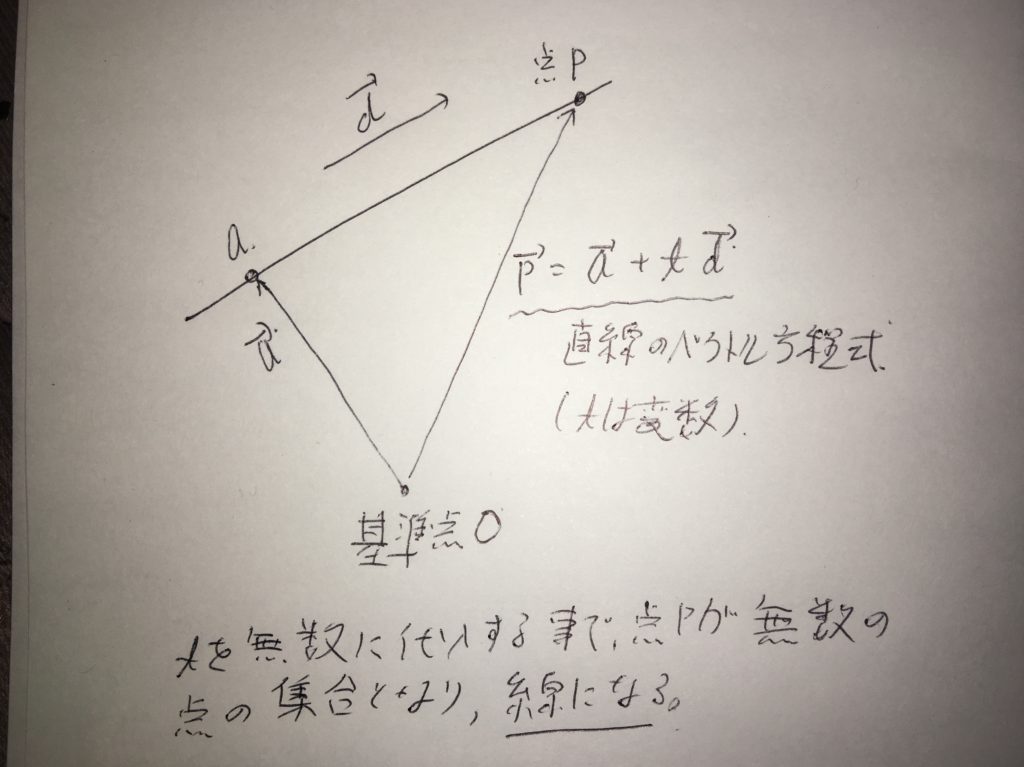 点P
d⃗
a.
p⃗ = a⃗ + t d⃗
a⃗
直線のベクトル方程式.
(tは変数).
基準点O
tを無数に代入する事で,点Pが無数の
点の集合となり,線になる。